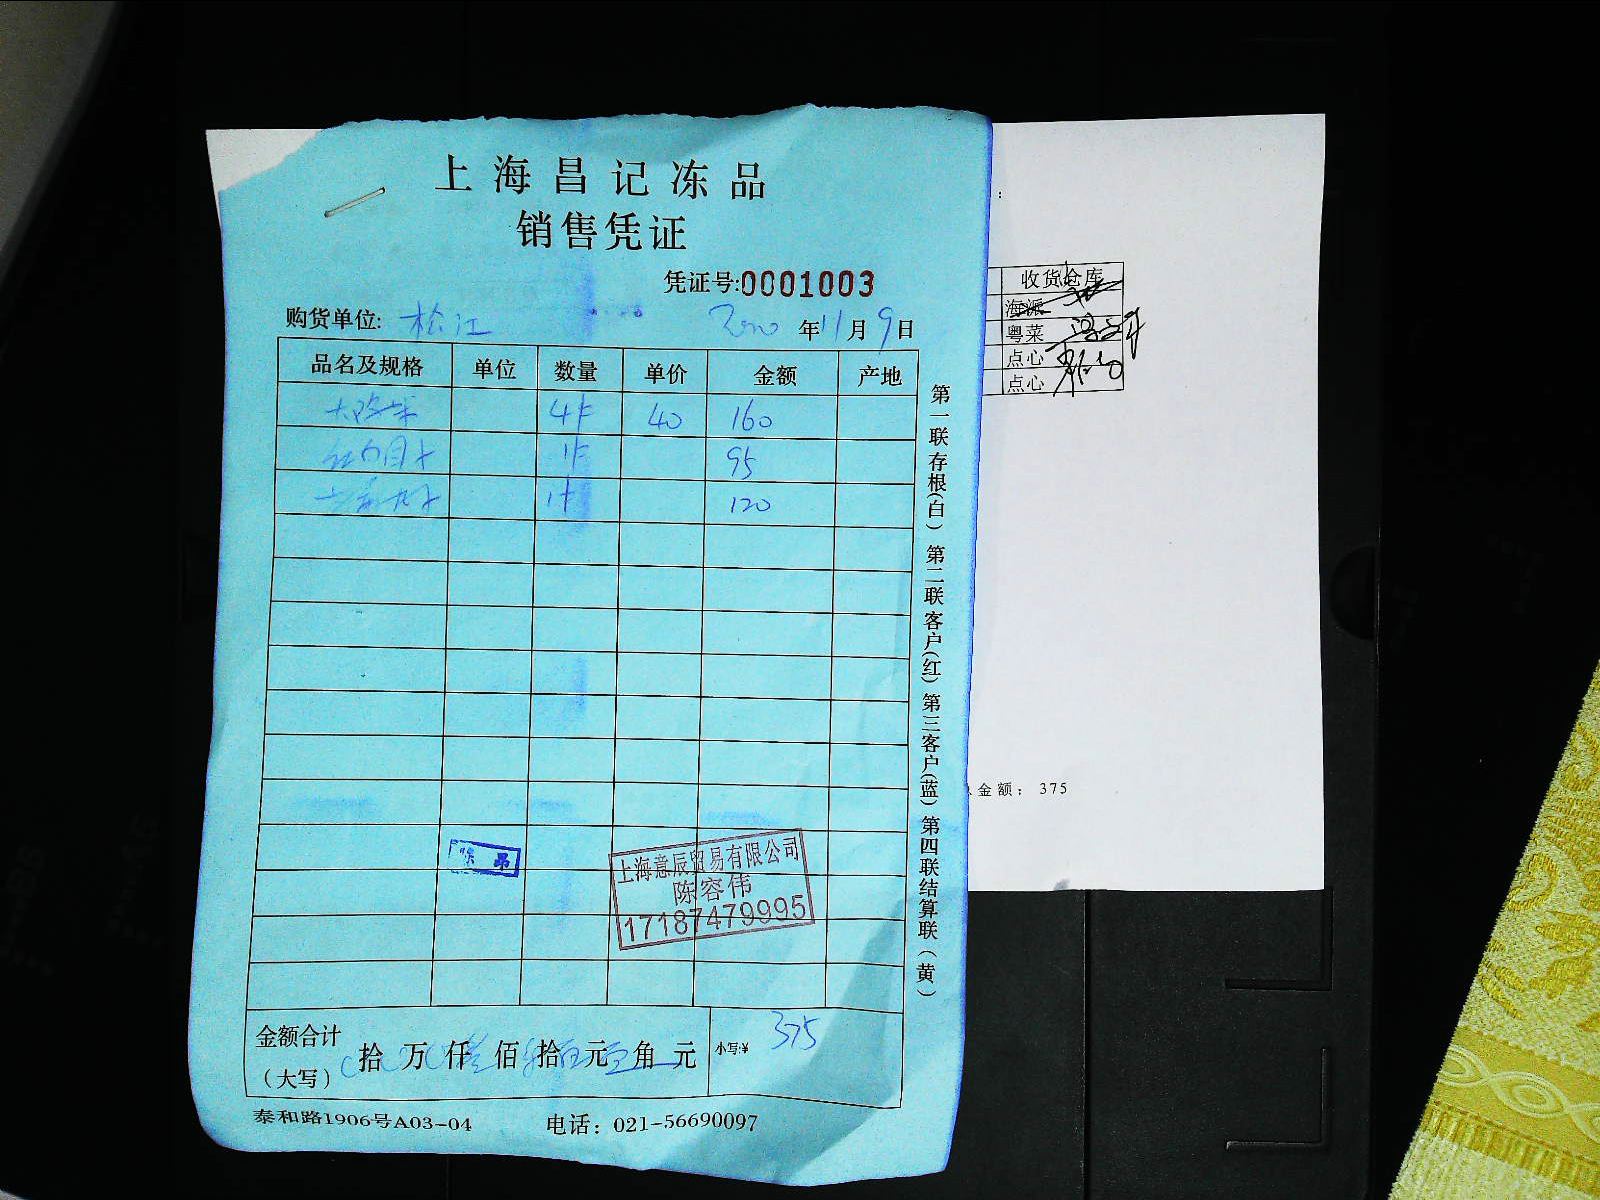 上海昌记冻品
销售凭证
凭证号:0001003
购货单位: 松江 2020 年 11 月 9 日
品名及规格 单位 数量 单价 金额 产地
4件 40 160
1件 95
1件 120
第一联存根(白) 第二联客户(红) 第三客户(蓝) 第四联结算联(黄)
上海意辰贸易有限公司
陈容伟
17187479995
金额合计
(大写) 拾 万 仟 佰 拾 元 角 元 小写:¥ 375
泰和路1906号A03-04 电话: 021-56690097
:
收货仓库
海派
粤菜
点心
点心
金额: 375